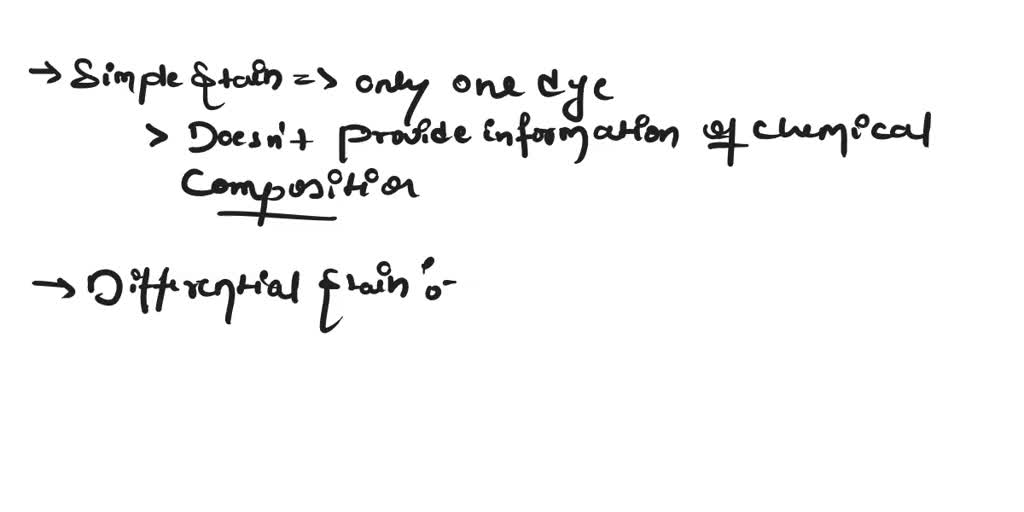 → Simple stain => only one dye
> Doesn't provide information of chemical
Composition
→ Differential stain :-